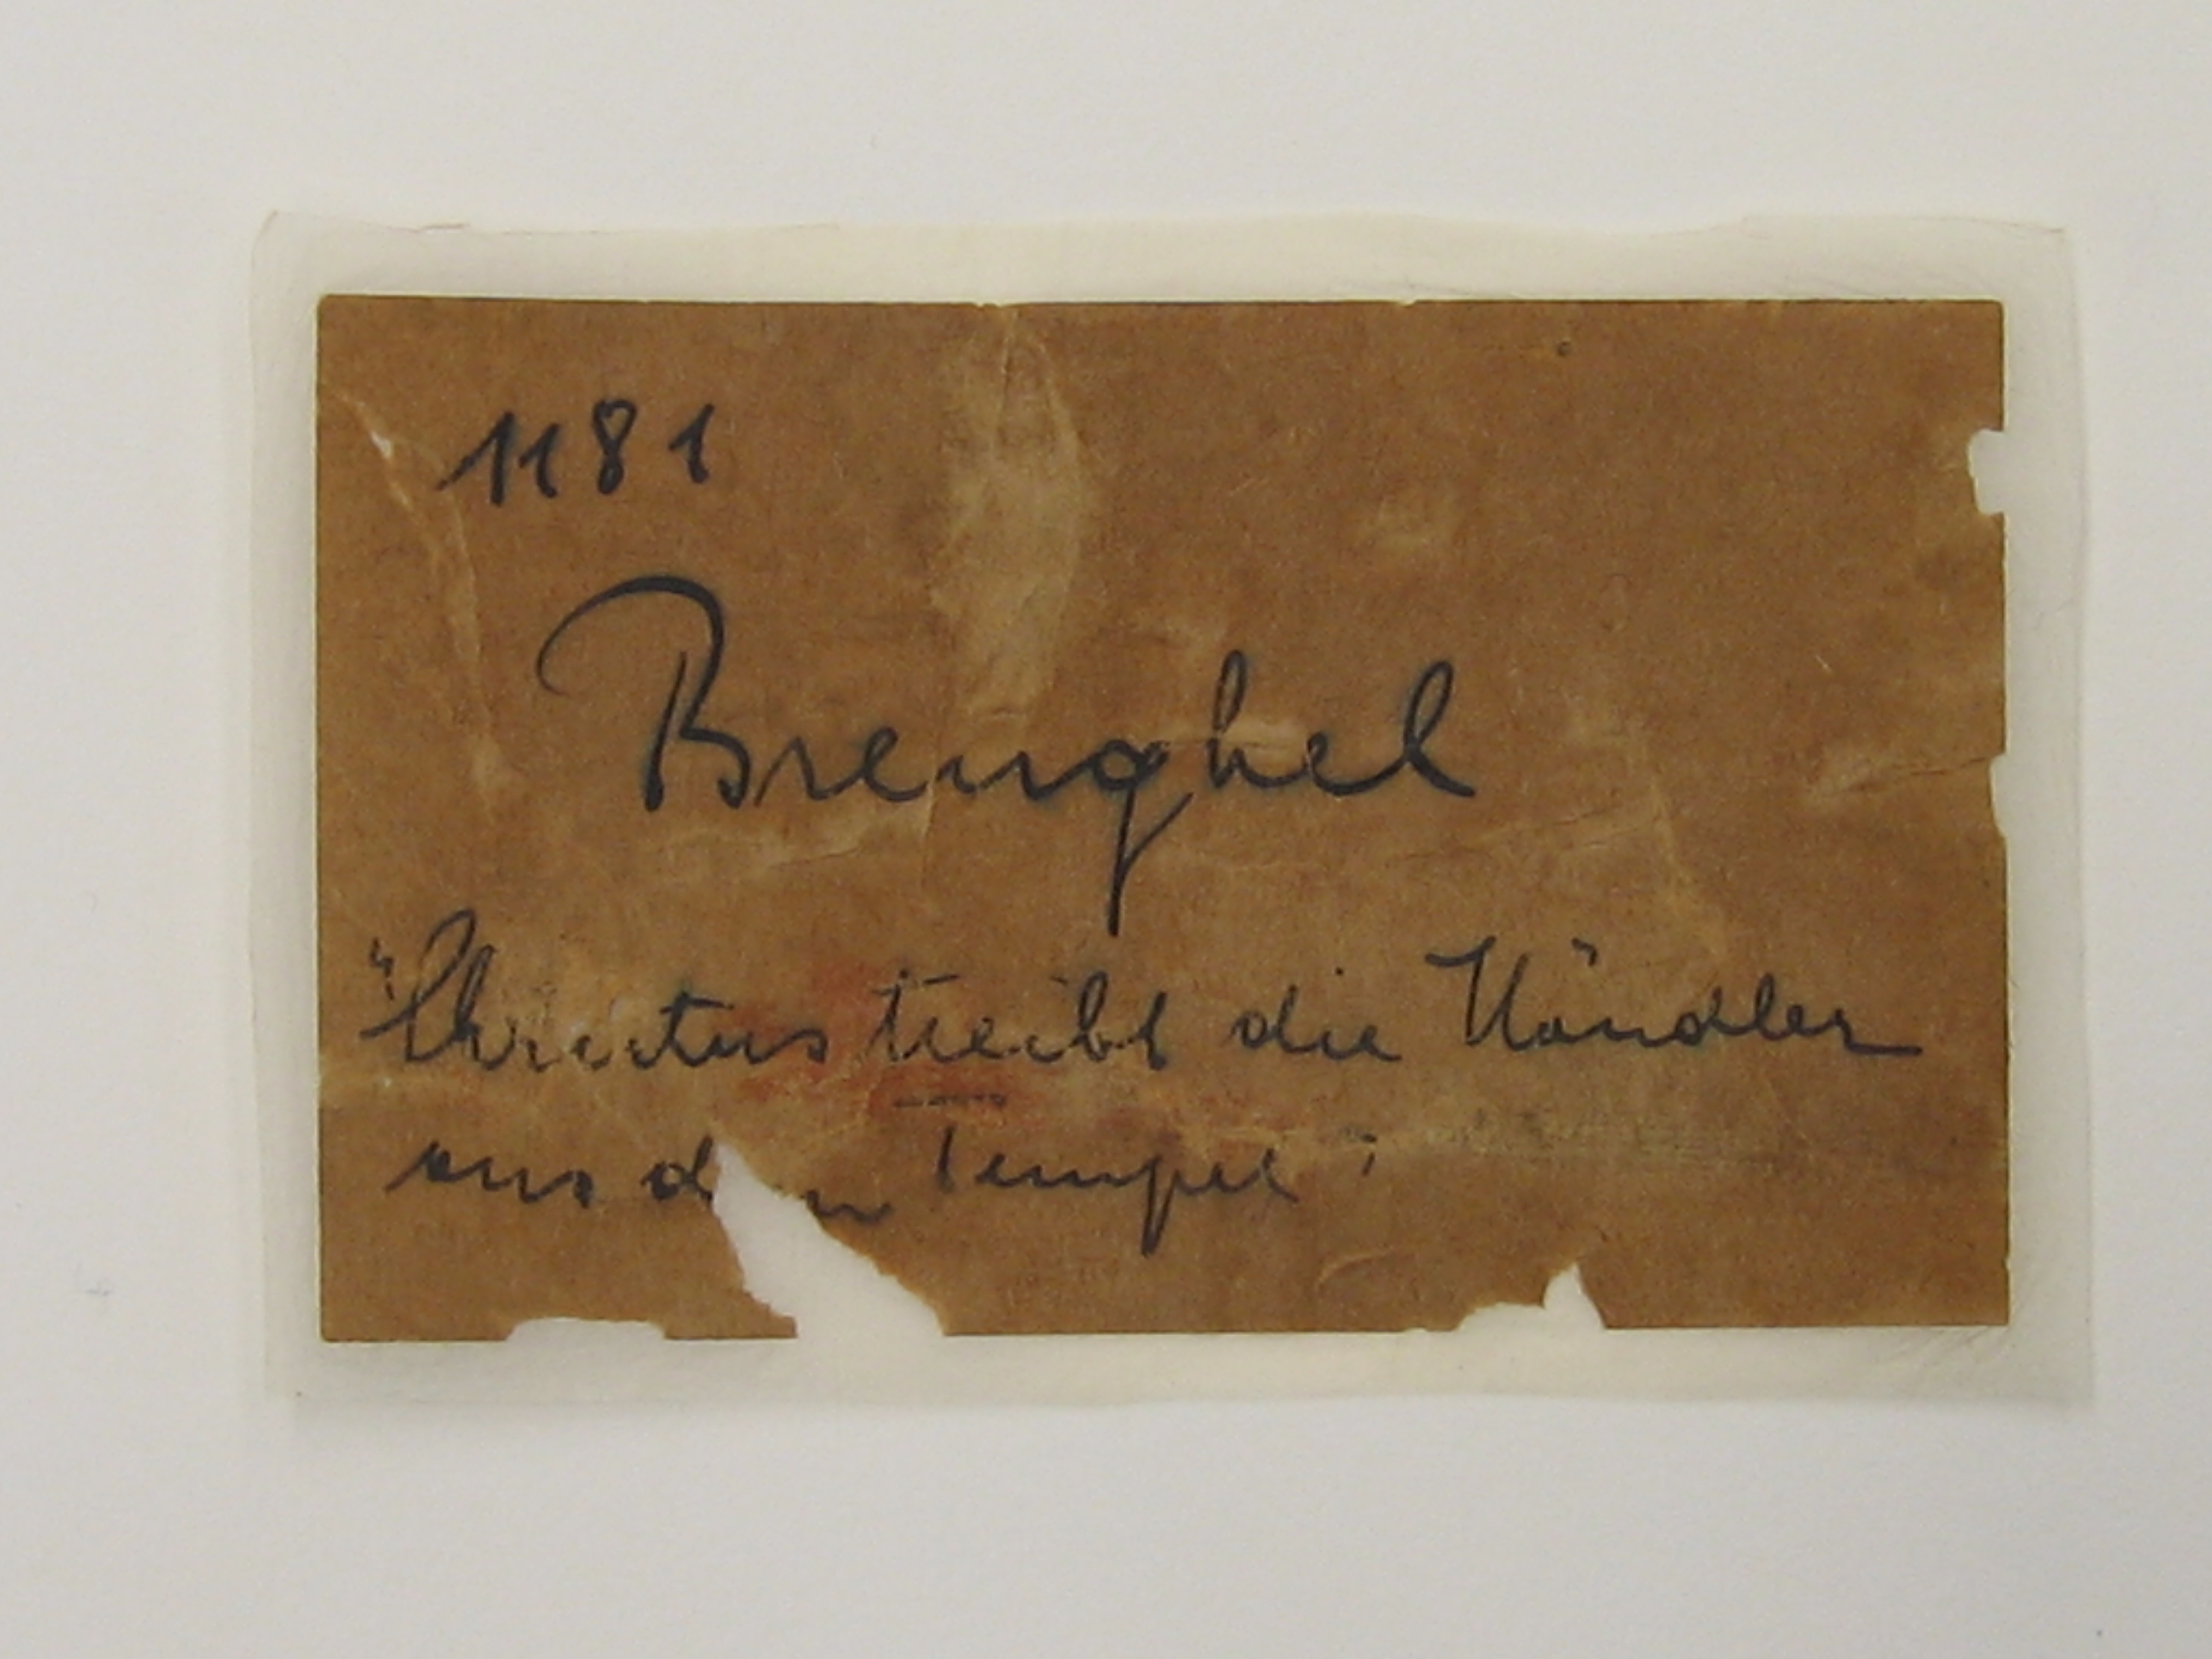 1181
Breughel
"Christus treibt die Händler
aus dem Tempel"